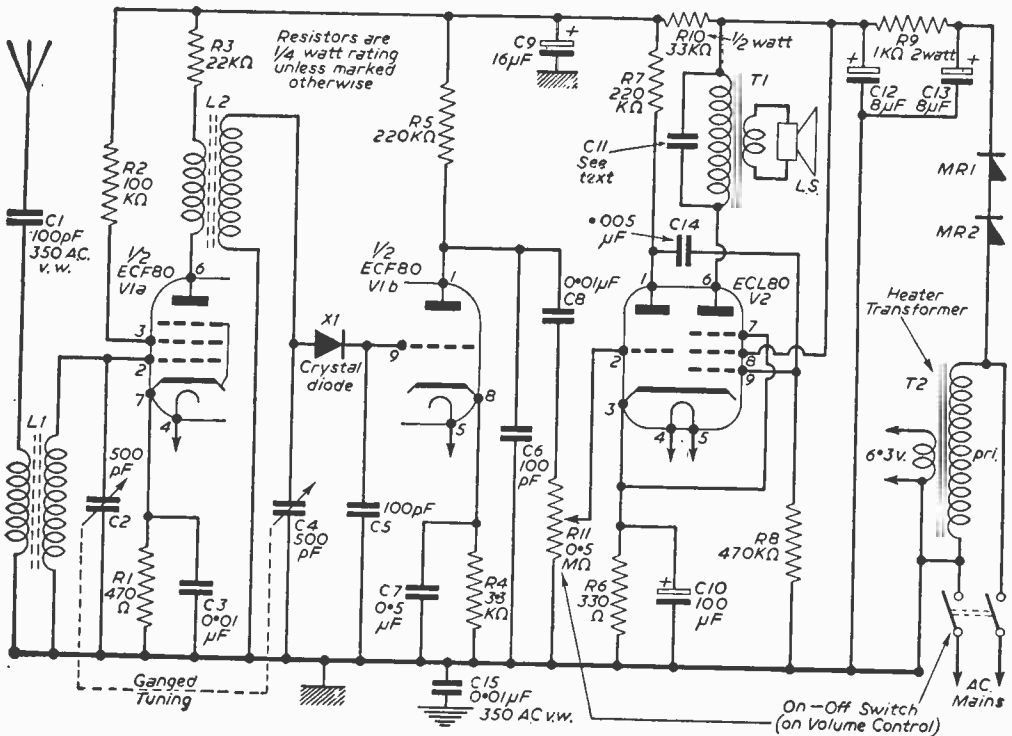 R3
22KΩ
Resistors are
1/4 watt rating
unless marked
otherwise
C9
16µF
+
R10
33KΩ
1/2 watt
R9
1KΩ 2watt
+
C12
8µF
+
C13
8µF
L2
R5
220KΩ
R7
220
KΩ
T1
C11
See
text
L.S.
MR1
MR2
R2
100
KΩ
C1
100pF
350 AC.
v.w.
•005
µF
C14
1/2
ECF80
V1a
6
3
2
7
4
1/2
ECF80
V1b
1
9
8
5
X1
Crystal
diode
0•01µF
C8
1
6
ECL80
V2
7
8
9
2
3
4
5
Heater
Transformer
T2
6•3v.
pri.
L1
500
pF
C2
C4
500
pF
100pF
C5
C6
100
pF
R11
0•5
MΩ
R8
470KΩ
R1
470
Ω
C3
0•01
µF
C7
0•5
µF
R4
KΩ
R6
330
Ω
+
C10
100
µF
Ganged
Tuning
C15
0•01µF
350 AC v.w.
On-Off Switch
(on Volume Control)
AC.
Mains